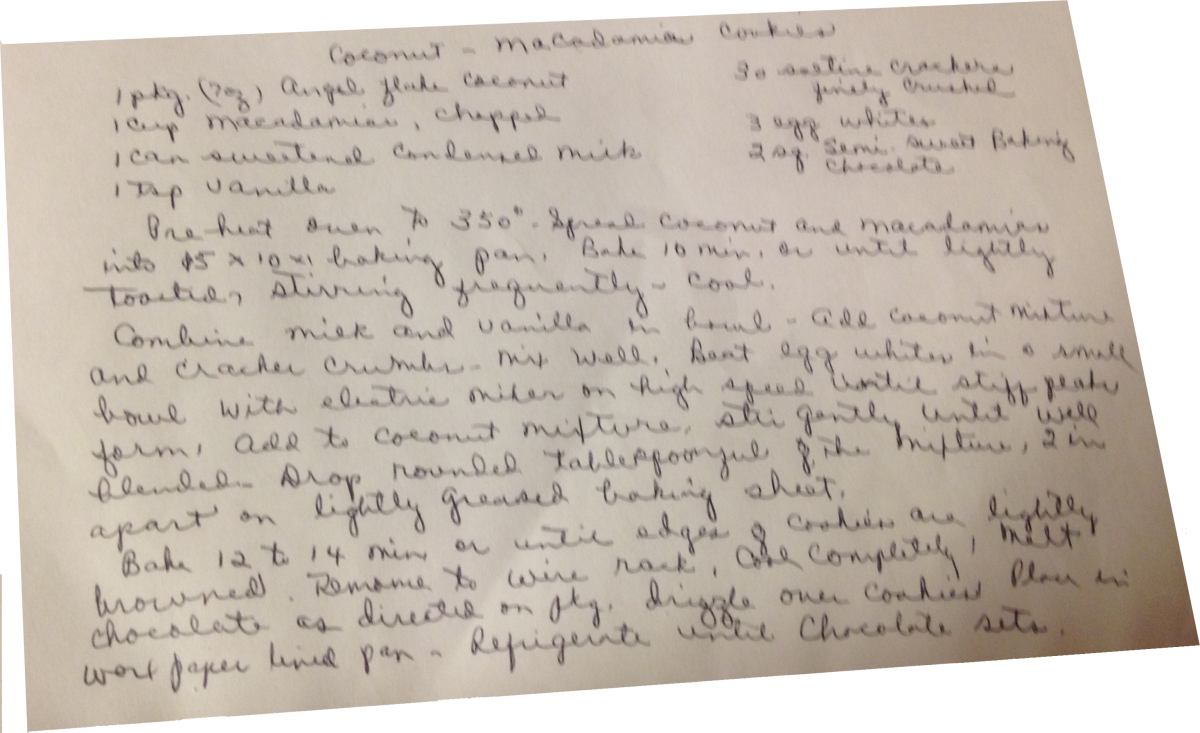 Coconut - Macadamia Cookies
1 pkg. (7oz) Angel flake coconut
1 cup macadamias, chopped
1 can sweetened condensed milk
1 Tsp vanilla
30 saltine crackers
finely crushed
3 egg whites
2 sq. semi-sweet Baking
chocolate
Pre-heat oven to 350°. Spread coconut and macadamias
into 15 x 10 x 1 baking pan. Bake 10 min, or until lightly
toasted, stirring frequently - cool.
Combine milk and vanilla in bowl - add coconut mixture
and cracker crumbs - mix well. Beat egg whites in a small
bowl with electric mixer on high speed until stiff peaks
form, add to coconut mixture, stir gently until well
blended - Drop rounded tablespoonful of the mixture, 2 in
apart on lightly greased baking sheet.
Bake 12 to 14 min or until edges of cookies are lightly
browned. Remove to wire rack, cool completely, Melt
chocolate as directed on pkg. drizzle over cookies Place in
wax paper lined pan - Refrigerate until Chocolate sets.